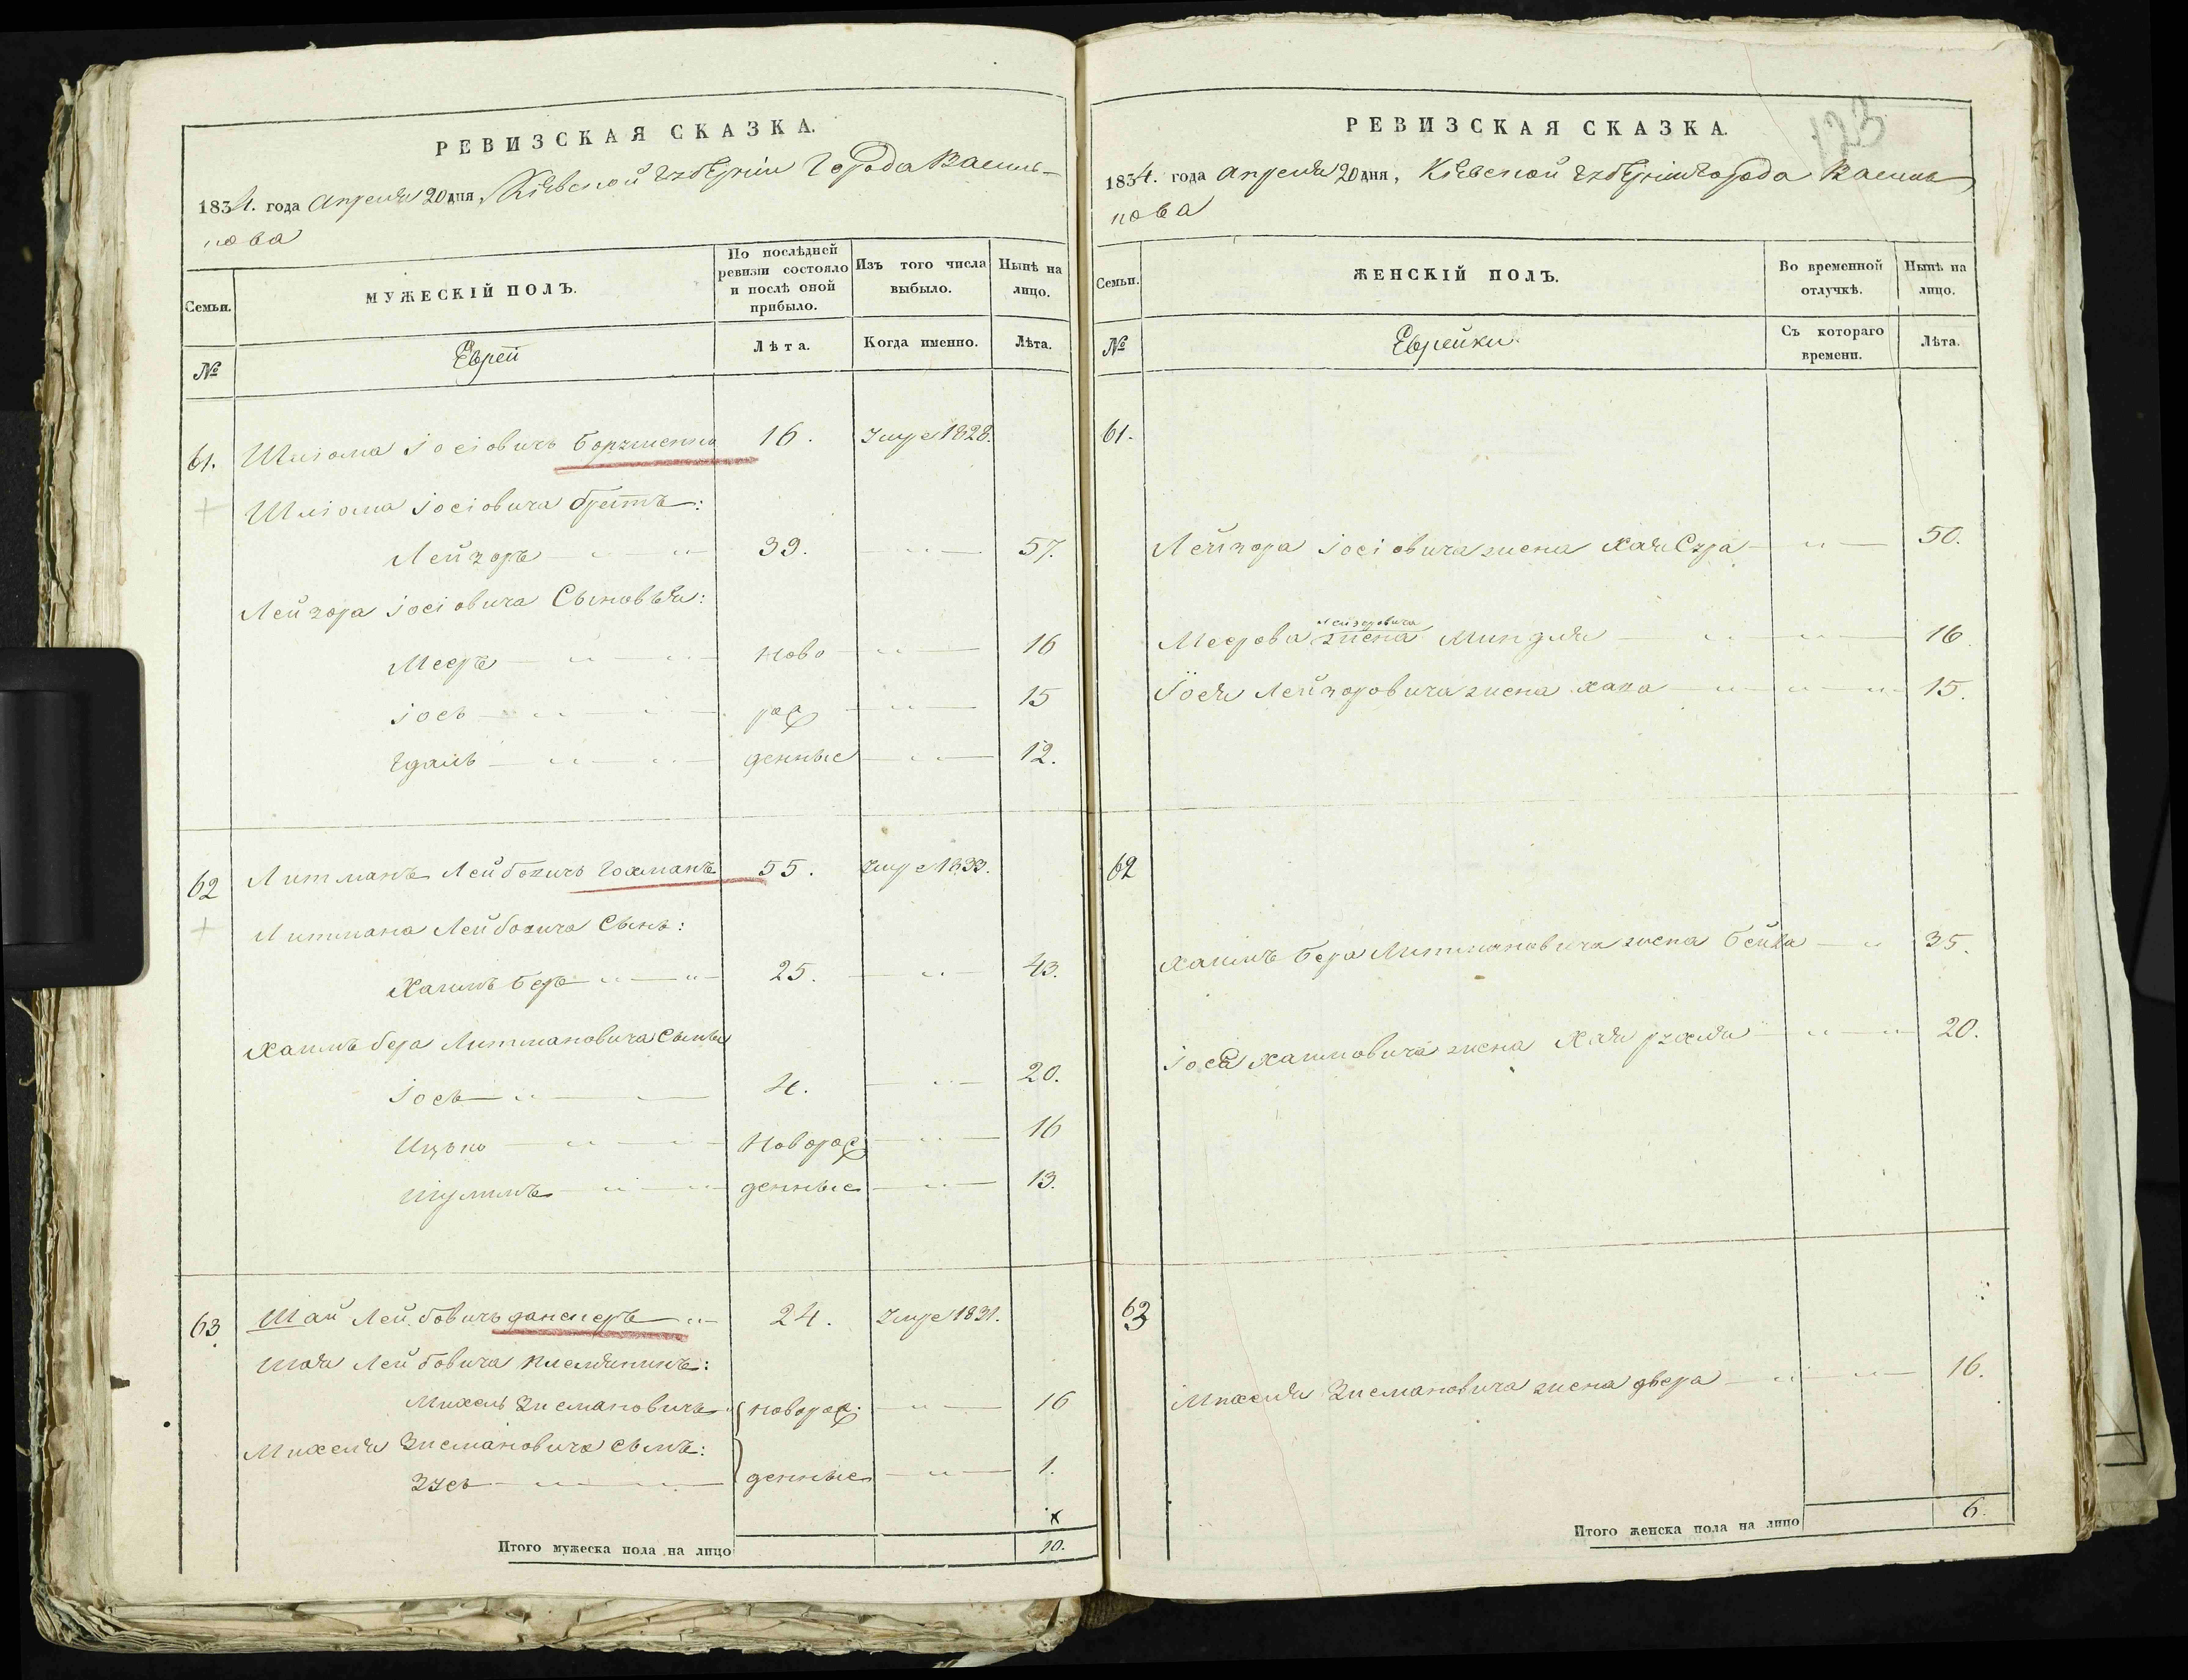 РЕВИЗСКАЯ СКАЗКА.
1834. года Апреля 20 дня, Кіевской губерніи Города Василь-
кова
Семьи.
МУЖЕСКІЙ ПОЛЪ.
По послѣдней ревизіи состояло и послѣ оной прибыло.
Изъ того числа выбыло.
Нынѣ на лицо.
№
Еврей
Лѣта.
Когда именно.
Лѣта.
61. Шліома Іосіовичъ 16. умре 1828.
Шліома Іосіовича братъ:
Лейзоръ 39. 57.
Лейзора Іосіовича Сыновья:
Мееръ ново 16
Іось рож 15
денные 12.
62 Литманъ Лейбовичъ Гохманъ 55. умре 1833.
Литмана Лейбовича Сынъ:
Хаимъ беръ 25. 43.
Хаимъ бера Литмановича Сыны
Іось 4. 20.
Ицко Новорож 16
Шулимъ денные 13.
63 Шай Лейбовичъ 24. умре 1831.
Шая Лейбовича племянникъ:
Михель Зисмановичъ новорож: 16
Михеля Зисмановича сынъ:
Зусь денные 1.
Итого мужеска пола на лицо 10.
123
РЕВИЗСКАЯ СКАЗКА.
1834. года Апреля 20 дня, Кіевской губерніи города Василь
кова
Семьи.
ЖЕНСКІЙ ПОЛЪ.
Во временной отлучкѣ.
Нынѣ на лицо.
№
Еврейки.
Съ котораго времени.
Лѣта.
61.
Лейзора Іосіовича жена Хая Сура 50.
Лейзоровича
Меерова жена Миндля 16
Іося Лейзоровича жена хана 15.
62
Хаимъ бера Литмановича жена Бейла 35.
Іося Хаимовича жена Хая рухля 20.
63
Михеля Зисмановича жена двера 16.
Итого женска пола на лицо 6.